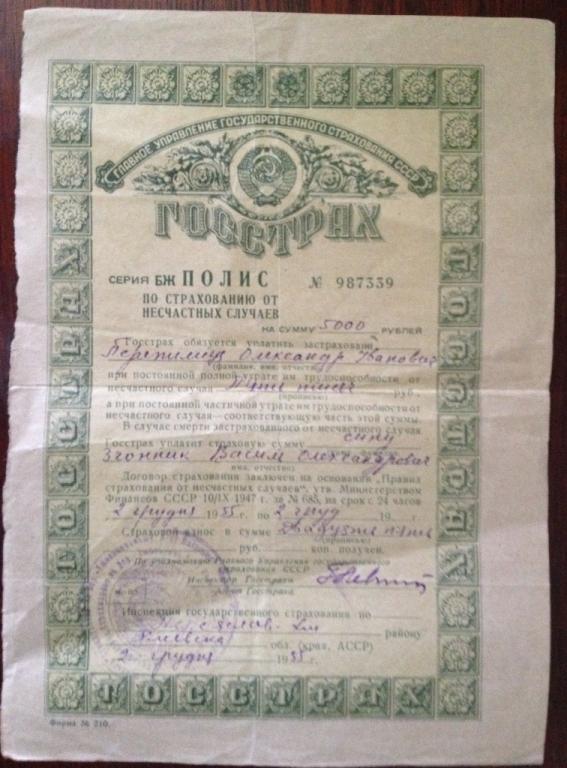 ГЛАВНОЕ УПРАВЛЕНИЕ ГОСУДАРСТВЕННОГО СТРАХОВАНИЯ СССР
ГОССТРАХ
СЕРИЯ БЖ ПОЛИС № 987339
ПО СТРАХОВАНИЮ ОТ
НЕСЧАСТНЫХ СЛУЧАЕВ
НА СУММУ 5000 РУБЛЕЙ
Госстрах обязуется уплатить застрахован
Олександр Іванович
(фамилия, имя, отчество)
при постоянной полной утрате им трудоспособности от
несчастного случая П'ять тисяч руб.,
(прописью)
а при постоянной частичной утрате им трудоспособности от
несчастного случая—соответствующую часть этой суммы.
В случае смерти застрахованного от несчастного случая
Госстрах уплатит страховую сумму сину
Василь Олександрович
имя, отчество)
Договор страхования заключен на основании „Правил
страхования от несчастных случаев", утв. Министерством
Финансов СССР 10/IX 1947 г. за № 685, на срок с 24 часов
2 грудня 1955 г. по 2 груд 19 г.
Страховой взнос в сумме Двадцять п'ять
(прописью)
руб. коп. получен.
По уполномочию Главного Управления государственного
страхования СССР
Инспектор Госстраха
Агент Госстраха
Инспекция государственного страхования по
району
обл. (края, АССР)
2 грудня 1955 г.
ГОССТРАХ
ГОССТРАХ
ГОССТРАХ
Форма № 210.